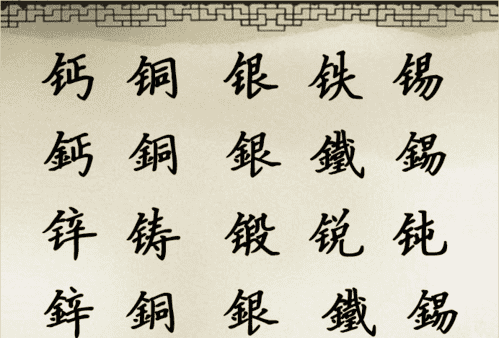 钙 铜 银 铁 锡
鈣 銅 銀 鐵 錫
锌 铸 锻 锐 钝
鋅 銅 銀 鐵 錫